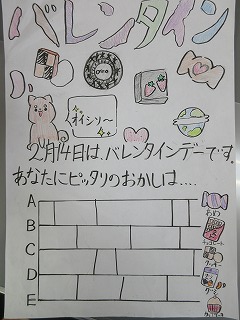 バレンタイン
オイシソ〜
2月14日は、バレンタインデーです。
あなたにピッタリのおかしは....
A
あめ
B
チョコレート
C
クッキー
D
グミ
E